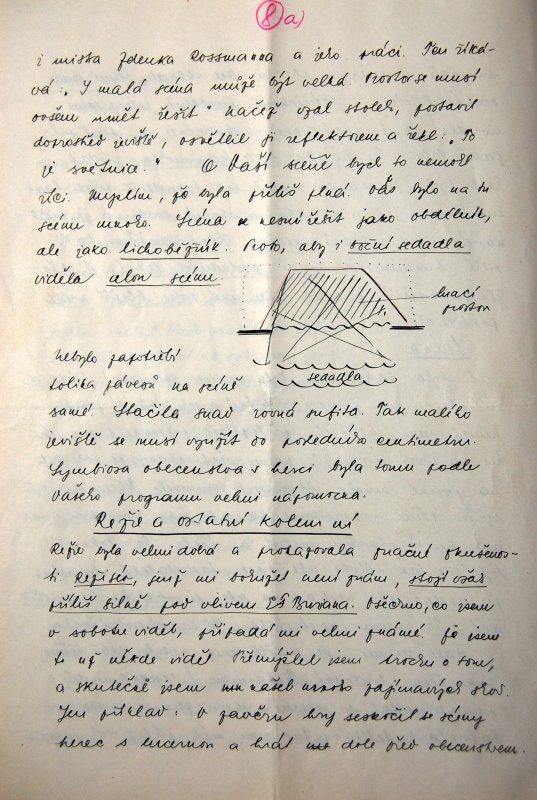 8a)
i mistra Zdenka Rossmanna a jeho práci. Ten říká-
vá: „I malá scéna může být velká. Prostor se musí
ovšem umět řešit" načež vzal stolek, postavil
doprostřed jeviště, osvětlil jej reflektorem a řekl: „To
je světnice." O Vaší scéně bych to nemohl
říci. Myslím, že byla příliš plná. Vás bylo na tu
scénu mnoho. Scéna se nesmí řešit jako obdélník,
ale jako lichoběžník. Proto, aby i boční sedadla
viděla celou scénu
hrací
prostor
sedadla
nebylo zapotřebí
tolika závěsů na scéně
samé. Stačila snad rovná sufita. Tak malého
jeviště se musí využít do posledního centimetru.
Symbiosa obecenstva s herci byla tomu podle
Vašeho programu velmi nápomocna.
Režie a ostatní kolem ní
Režie byla velmi dobrá a prozazovala značné zkušenos-
ti. Režisér, jenž mi bohužel není znám, stojí však
příliš silně pod vlivem EF Buriana. Všechno, co jsem
v sobotu viděl, připadá mi velmi známé. Že jsem
to už někde viděl. Přemýšlel jsem trochu o tom,
a skutečně jsem našel mnoho zajímavých shod.
Jen příklad: V závěru hry seskočil se scény
herec s lucernou a hrál dole před obecenstvem.